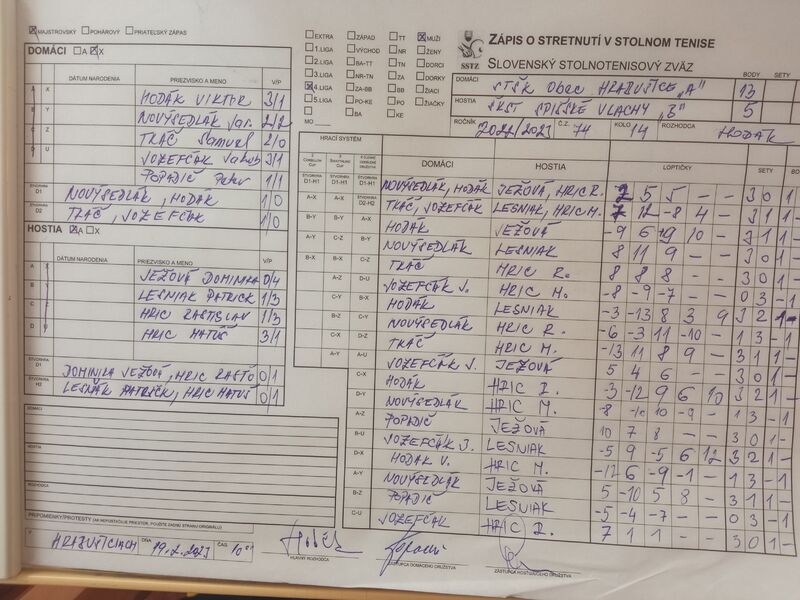 ☒ MAJSTROVSKÝ ☐ POHÁROVÝ ☐ PRIATEĽSKÝ ZÁPAS
DOMÁCI ☐ A ☒ X
DÁTUM NARODENIA PRIEZVISKO A MENO V/P
A X HODÁK VIKTOR 3/1
B Y NOVÝSEDLÁK Jar. 2/2
C Z TKÁČ Samuel 2/0
D U JOZEFČÁK Jakub 3/1
POPADIČ Peter 1/1
ŠTVORHRA D1 NOVÝSEDLÁK, HODÁK 1/0
D2 TKÁČ, JOZEFČÁK 1/0
HOSTIA ☒ A ☐ X
DÁTUM NARODENIA PRIEZVISKO A MENO V/P
A X JEŽOVÁ DOMINIKA 0/4
B Y LESNIAK PATRICK 1/3
C Z HRIC RASTISLAV 1/3
D U HRIC MATÚŠ 3/1
ŠTVORHRA D1 DOMINIKA JEŽOVÁ, HRIC RASŤO 0/1
ŠTVORHRA H2 PATRICK, HRIC MATÚŠ 0/1
DOMÁCI
HOSTIA
ROZHODCA
PRIPOMIENKY/PROTESTY (AK NEPOSTAČUJE PRIESTOR, POUŽITE ZADNÚ STRANU ORIGINÁLU)
V HRABUŠICIACH DŇA 19.2.2023 ČAS 10
HLAVNÝ ROZHODCA
ZÁSTUPCA DOMÁCEHO DRUŽSTVA
ZÁSTUPCA HOSŤUJÚCEHO DRUŽSTVA
☐ EXTRA ☐ ZÁPAD ☐ TT ☒ MUŽI
☐ 1.LIGA ☐ VÝCHOD ☐ NR ☐ ŽENY
☐ 2.LIGA ☐ BA-TT ☐ TN ☐ DORCI
☐ 3.LIGA ☐ NR-TN ☐ ZA ☐ DORKY
☒ 4.LIGA ☐ ZA-BB ☐ BB ☐ ŽIACI
☐ 5.LIGA ☐ PO-KE ☐ PO ☐ ŽIAČKY
☐ BA ☐ KE
MO
SSTZ
ZÁPIS O STRETNUTÍ V STOLNOM TENISE
SLOVENSKÝ STOLNOTENISOVÝ ZVÄZ
BODY SETY
DOMÁCI STŠK Obec HRABUŠICE "A" 13
HOSTIA ŠKST SPIŠSKÉ VLACHY "B" 5
ROČNÍK 2022/2023 Č.Z. 74 KOLO 14 ROZHODCA HODÁK
HRACÍ SYSTÉM
DOMÁCI HOSTIA LOPTIČKY SETY BODY
ŠTVORHRA D1-H1 ŠTVORHRA D1-H1 ŠTVORHRA D1-H1 NOVÝSEDLÁK, HODÁK JEŽOVÁ, HRIC R. 2 5 5 - - 3 0 1
A-X A-X ŠTVORHRA D2-H2 TKÁČ, JOZEFČÁK LESNIAK, HRIC M. 7 12 -8 4 - 3 1 1
B-Y B-Y A-X HODÁK JEŽOVÁ -9 6 19 10 - 3 1 1
A-Y C-Z B-Y NOVÝSEDLÁK LESNIAK 8 11 9 - - 3 0 1
B-X B-X C-Z TKÁČ HRIC R. 8 8 8 - - 3 0 1
A-Z D-U JOZEFČÁK J. HRIC M. -8 -9 -7 - - 0 3 - 1
C-Y B-X HODÁK LESNIAK -3 -13 8 3 9 3 2 1 -
B-Z C-Y NOVÝSEDLÁK HRIC R. -6 -3 11 -10 - 1 3 - 1
C-X D-Z TKÁČ HRIC M. -13 11 8 9 - 3 1 1
A-Y A-U JOZEFČÁK J. JEŽOVÁ 5 4 6 - - 3 0 1
C-X HODÁK HRIC -3 -12 9 6 10 3 2 1
D-Y NOVÝSEDLÁK HRIC M. -8 -10 10 -9 - 1 3 - 1
A-Z POPADIČ JEŽOVÁ 10 7 8 - - 3 0 1
B-U JOZEFČÁK J. LESNIAK -5 9 -5 6 12 3 2 1 -
D-X HODÁK V. HRIC M. -12 6 -9 -1 - 1 3 - 1
A-Y NOVÝSEDLÁK JEŽOVÁ 5 -10 5 8 - 3 1 1
B-Z POPADIČ LESNIAK -5 -4 -7 - - 0 3 - 1
C-U JOZEFČÁK HRIC 7 1 1 - - 3 0 1 -